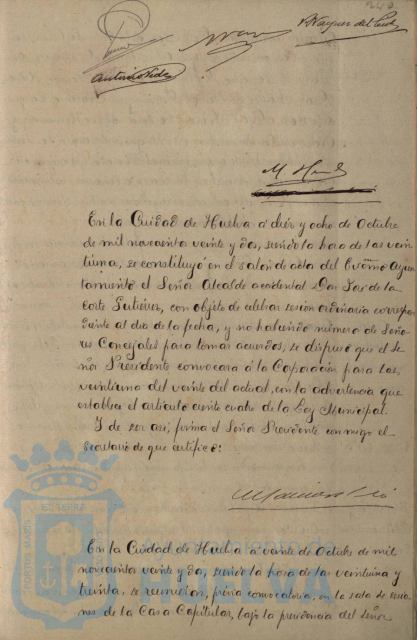 249
Antonio Vide
V. Vazquez del
En la Ciudad de Huelva á diez y ocho de Octubre
de mil novecientos veinte y dos, siendo la hora de las vein-
tiuna, se constituyó en el salón de actos del Excmo Ayun
tamiento el Señor Alcalde accidental Don José de la
Corte Gutiérrez, con objeto de celebrar sesion ordinaria corres-
diente al día de la fecha, y no habiendo número de Seño-
res Concejales para tomar acuerdos, se dispuso que el Se
ñor Presidente convocara á la Corporación para las
veintiuna del veinte del actual, con la advertencia que
establece el artículo ciento cuatro de la Ley Municipal.
Y de ser así, firma el Señor Presidente conmigo el
Secretario de que certifico:
En la Ciudad de Huelva á veinte de Octubre de mil
novecientos veinte y dos, siendo la hora de las veintiuna y
treinta, se reunieron, prévia convocatoria, en la sala de sesio-
nes de la Casa Capitular, bajo la presidencia del señor
PORTUS MARIS
ET TERRAE
Ayuntamiento de
HUELVA